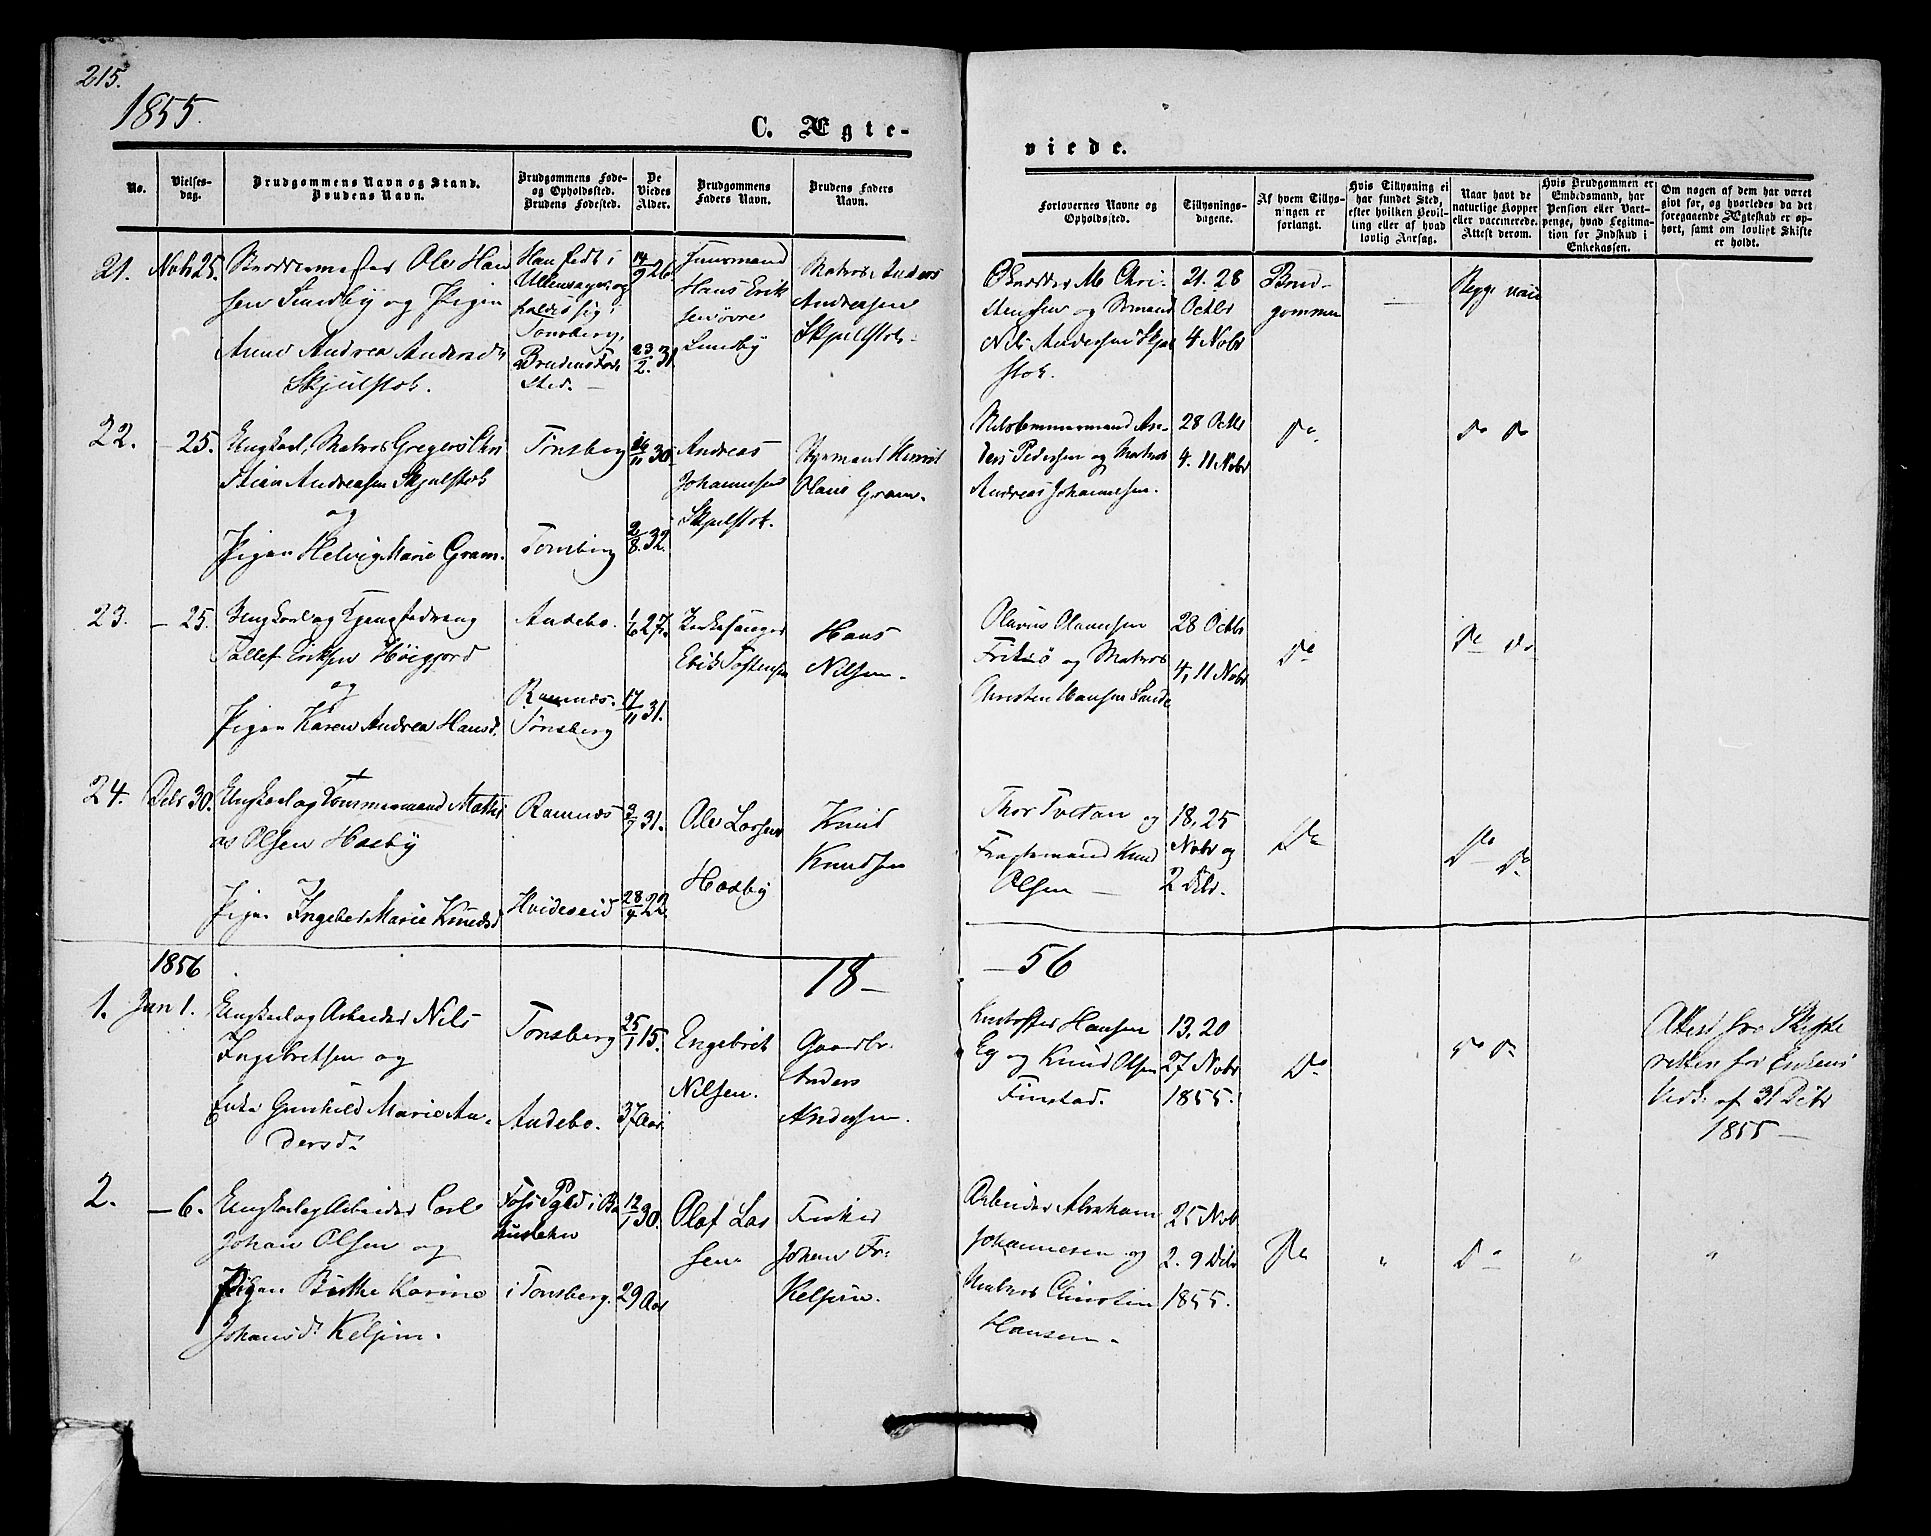 215.
1855.
C. Ægte-
viede.
No.
Vielses-
dag.
Brudgommens Navn og Stand.
Brudens Navn.
Brudgommens Føde-
og Opholdssted.
Brudens Fødested.
De
Viedes
Alder.
Brudgommens
Faders Navn.
Brudens Faders
Navn.
Forlovernes Navne og
Opholdssted.
Tillysnings-
dagene.
Af hvem Tillys-
ningen er
forlangt.
Hvis Tillysning ei
har fundet Sted,
efter hvilken Bevil-
ling eller af hvad
lovlig Aarsag.
Naar havt de
naturlige Kopper
eller vaccinerede.
Attest derom.
Hvis Brudgommen er
Embedsmand, har
Pension eller Vart-
penge, hvad Legitima-
tion for Indskud i
Enkekassen.
Om nogen af dem har været
gift før, og hvorledes da det
foregaaende Ægteskab er op-
hørt, samt om lovligt Skifte
er holdt.
21. Novb 25.
Ole Han
sen Lundby og Pigen
Anne Andrea Andersd
Skjelstob.
Han født i
Ullensager og
Tønsberg,
Brudens Føde
Sted.
14/9 26.
23/2. 31
Huusmand
Hans Erik
sen øvre
Lundby
Matros Anders
Andreasen
Skjelstob.
M. Chri-
stensen og
Nils Andersen Skjel
stob.
21. 28
Octbr
4 Novb
Brud-
gommen
Begge vacc
22. – 25.
Ungkarl, Matros Gregers Chri
stian Andreasen Skjelstob
og
Pigen Helvig Marie Gram.
Tønsberg
Tønsberg
16/11 30.
2/8 32.
Andreas
Johannesen
Skjelstob.
Styrmand Henrik
Olaus Gram.
An-
ders Pedersen og Matros
Andreas Johannesen.
28 Octbr
4. 11 Novbr
Do
Do Do
23. – 25.
Ungkarl og
Tollef Eriksen Høigjord
og
Pigen Karen Andrea Hansd.
Andebo.
Ramnæs.
Tønsberg
1/6 27.
17/11 31.
Kirkesanger
Erik Tostensen
Hans
Nilsen.
Olavus Olavesen
og Matros
Christen Hansen Sande
28 Octbr
4, 11 Novbr
Do
Do Do
24. Decbr 30.
Ungkarl og Tømmermand Mathi
as Olsen Hasby
og
Pigen Ingeber Marie Knudsd
Ramnæs
Hvideseid
3/7 31.
28/4 22.
Ole Larsen
Hasby
Knud
Knudsen
Thor Tveitan og
Fragtemand Knud
Olsen –
18, 25
Novbr og
2 Decbr.
Do
Do Do
1856
18 –
– 56
1. Jan 1.
Ungkarl og Arbeider Nils
Ingebretsen og
Enke Gunhild Marie An-
dersdr
Tønsberg
Andebo.
25/1 15.
37 Aar
Engebret
Nilsen.
Gaardbr.
Anders
Andersen.
Kristoffer Hansen
Eg og Knud Olsen
Finstad.
13, 20
27 Novbr
1855.
Do
Do Do
Attest fra Skifte
retten for Enkens
Vedk. af 31 Decbr
1855 –
2. – 6.
Ungkarl og Arbeider Carl
Johan Olsen og
Pigen Birthe Karine
Johansdr Keljim.
i Tønsberg.
12/1 30.
29 Aar
Olof Las
sen
Fisker
Johan Fr.
Keljim.
Arbeider Abraham
Johannesen og
Matros Christian
Hansen.
25 Novb
2. 9 Decbr
1855.
Do
"
Do
"
"